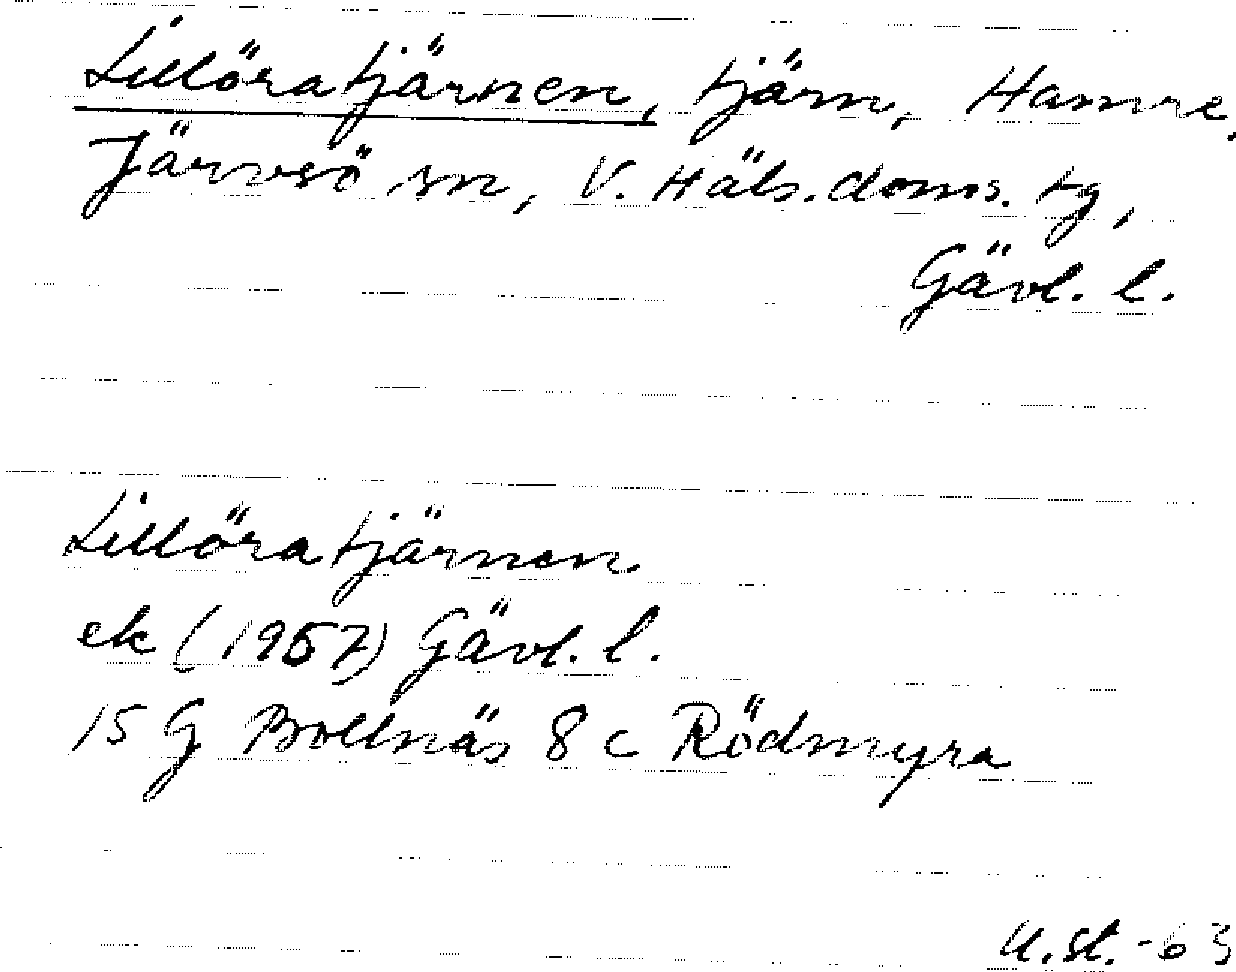 Lillöratjärnen, tjärn, Hamre,
Järvsö sn, V. Häls. doms. tg,
Gävl. l.
Lillöratjärnen
ek (1957) Gävl. l.
15 G Bollnäs 8 c Rödmyra
U.St.-63